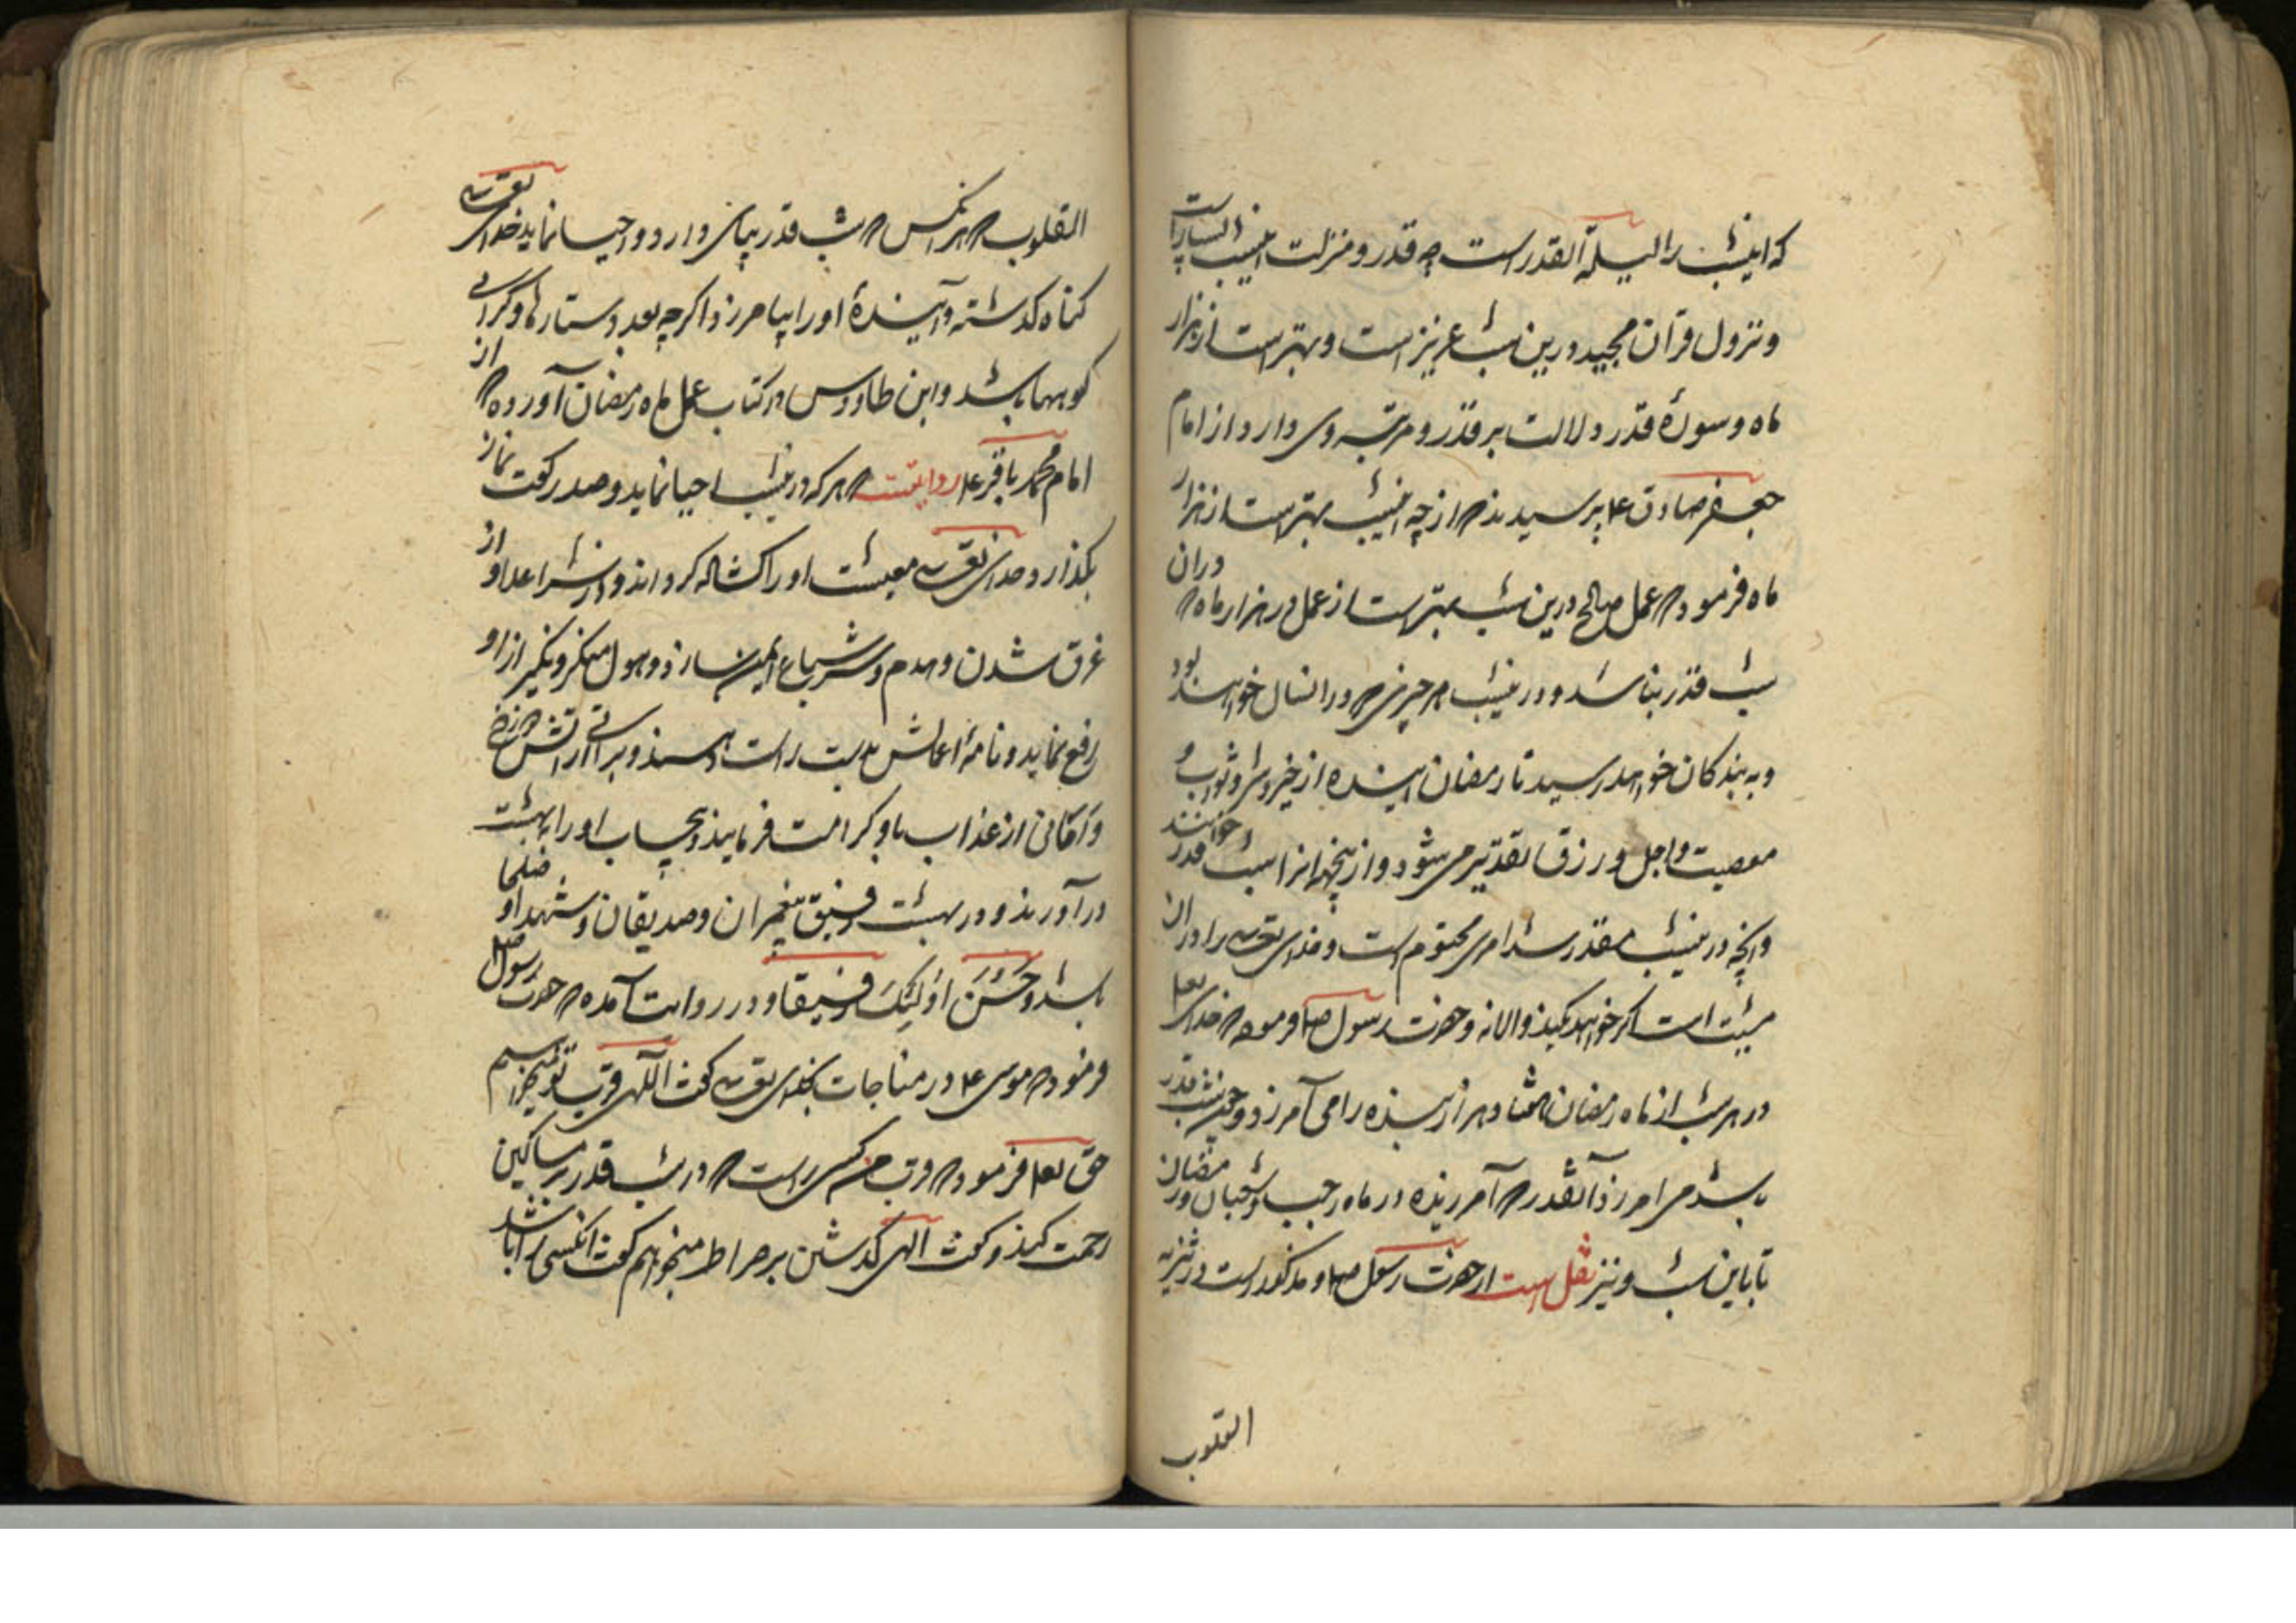 که اینشب را لیلة القدر است چه قدر و منزلت اینشب بسیار است
و نزول قرآن مجید درین شب عزیز است و بهتر است از هزار
ماه و سورۀ قدر دلالت بر قدر و مرتبه وی دارد از امام
جعفر صادق ع پرسیدند که از چه اینشب بهتر است از هزار
ماه فرمود که عمل صالح درین شب بهتر است از عمل در هزار ماه که دران
شب قدر نباشد و درینشب هر چیزی که در انسال خواهد بود
و به بندکان خواهد رسید تا رمضان اینده از خیر و شر و ثواب و
معصیت و اجل و رزق تقدیر می شود و از ینجهة انرا شب قدر خوانند
و انچه درینشب مقدر شد امری محتوم است و خدای تعه را دران
مشیت است اکر خواهد کند والا نه و حضرت رسول صلم فرموده که خدای تعا
در هر شب از ماه رمضان هفتاد هزار بنده را می آمرزد و چون شب قدر
باشد می امرزد آنقدر که آمرزیده در ماه رجب و شعبان و رمضان
تا باین شب و نیز نقل است از حضرت رسول صلم و مذکور است در
القلوب
القلوب که هر انکس که شب قدر بپای دارد و احیا نماید خدای تعه
کناه کذشته و آیندۀ او را بیامرزد اکرچه بعدد ستارها و کرانی
کوهها باشد و ابن طاووس در کتاب عمل ماه رمضان آورده که از
امام محمد باقر ع روایتست که هر که درینشب احیا نماید و صد رکعت نماز
بکذارد خدای تعه معیشت او را کشاده کرداند و از شر اعدا و از
غرق شدن و هدم و شر سباع ایمن سازد و هول منکر و نکیر از او
رفع نماید و نامۀ اعمالش بدست راست دهند و براتی از اتش دوزخ
و امانی از عذاب باو کرامت فرمایند و بیحساب او را ببهشت
درآورند و در بهشت رفیق پیغمبران و صدیقان و شهدا و صلحا
باشد و حَسُنَ اولَئِکَ رفیقا و در روایت آمده که حضرت رسول صلم
فرمود که موسی ع در مناجات بخدای تعه کفت الهی قرب تو میخواهم
حق تعا فرمود که قرب من کسی راست که در شب قدر بر مساکین
رحمت کند و کفت الهی کذشتن بر صراط میخواهم کفت انکسی را باشد